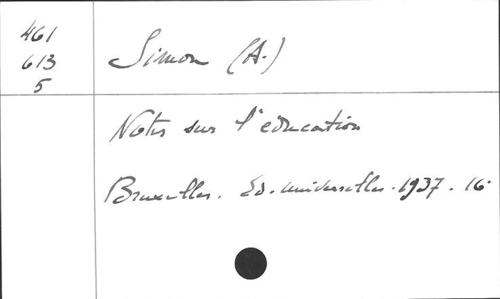 461
613
5
Simon (A.)
Notes sur l'education
Bruxelles. Ed. Universelles. 1937. 16°